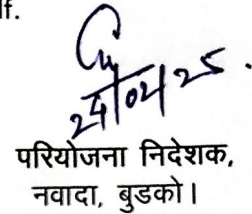 lf.
24/04/25.
परियोजना निदेशक,
नवादा, बुडको।